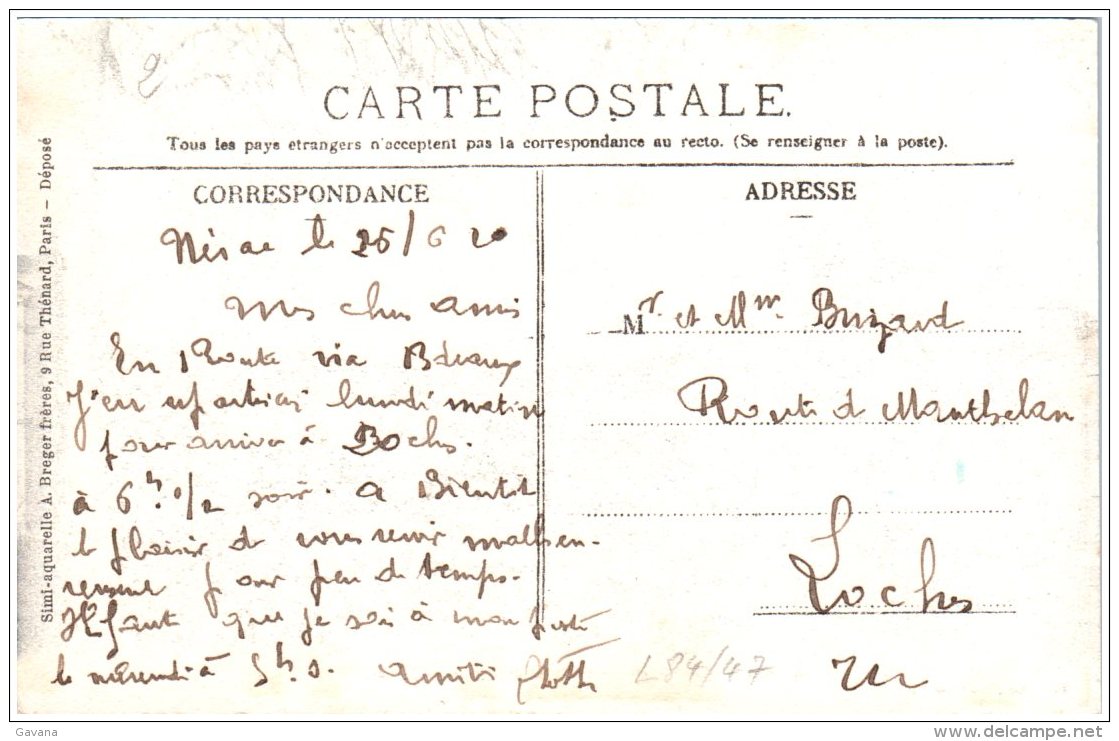 2
CARTE POSTALE.
Tous les pays étrangers n'acceptent pas la correspondance au recto. (Se renseigner à la poste).
CORRESPONDANCE
Nérac le 26/6 20
Mes chers amis
En Route via Bdeaux
J'en repartirai lundi matin
pour arriver à Loches.
à 6h 1/2 soir. a Bientôt
le plaisir de vous revoir malheu-
reusement pour peu de temps.
Il faut que je sois à mon poste
le mercredi à 5h s. Amitié
ADRESSE
Mr et Mme Buizard
Route de Manthelan
Loches
L84/47
Simi-aquarelle A. Breger frères, 9 Rue Thénard, Paris — Déposé
Gavana
delcampe.net